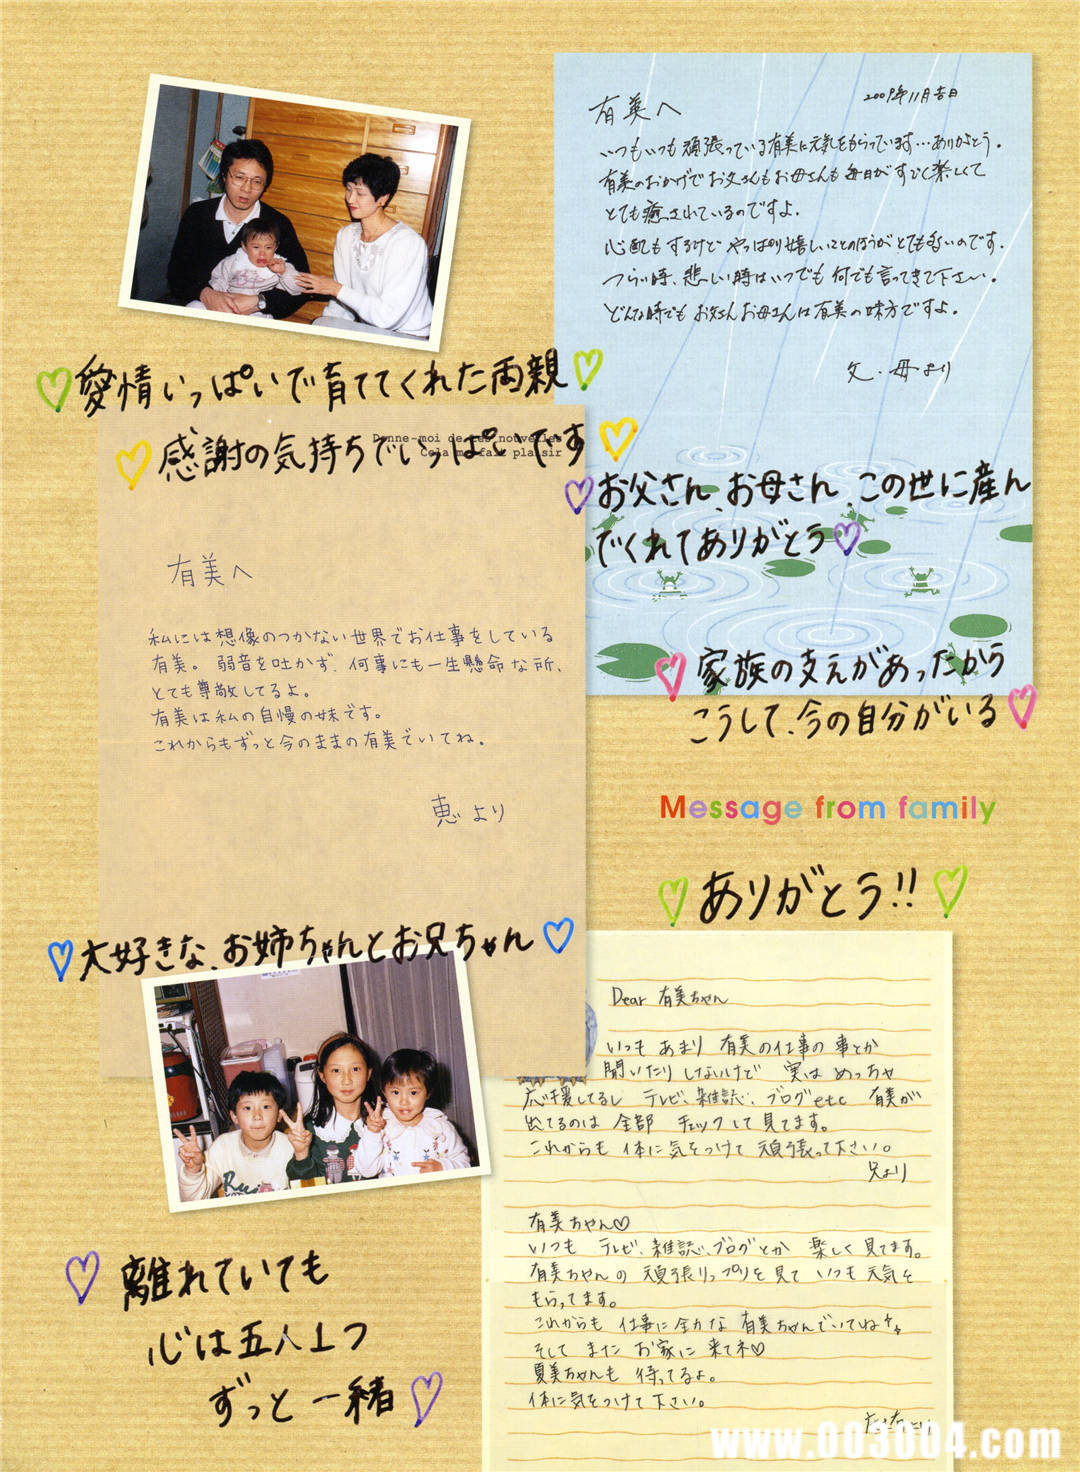 2009年11月吉日
有美へ
いつもいつも頑張っている有美に元気をもらっています…ありがとう。
有美のおかげでお父さんもお母さんも毎日がすごく楽しくて
とても癒されているのですよ。
心配もするけど やっぱり嬉しいことのほうがとても多いのです。
つらい時、悲しい時はいつでも何でも言ってきて下さい。
どんな時でもお父さんお母さんは有美の味方ですよ。
父・母より
愛情いっぱいで育ててくれた両親
感謝の気持ちでいっぱいです
Donne-moi de tes nouvelles
Cela me fait plaisir
お父さん、お母さん、この世に産ん
でくれてありがとう
有美へ
私には想像のつかない世界でお仕事をしている
有美。弱音を吐かず、何事にも一生懸命な所、
とても尊敬してるよ。
有美は私の自慢の妹です。
これからもずっと今のままの有美でいてね。
恵より
家族の支えがあったから
こうして、今の自分がいる
Message from family
ありがとう!!
大好きな、お姉ちゃんとお兄ちゃん
Dear 有美ちゃん
いつも あまり 有美の仕事の事とか
聞いたりしないけど 実は めっちゃ
応援してるし テレビ、雑誌、ブログetc 有美が
出てるのは 全部 チェックして見てます。
これからも 体に気をつけて 頑張って下さい。
兄より
有美ちゃん♡
いつも テレビ、雑誌、ブログとか 楽しく見てます。
有美ちゃんの 頑張りっプリを見て いつも元気を
もらってます。
これからも 仕事に全力な 有美ちゃんでいてね
そして また お家に 来てネ♡
夏美ちゃんも 待ってるよ。
体に気をつけて下さい。
離れていても
心は五人1つ
ずっと一緒
www.003004.com